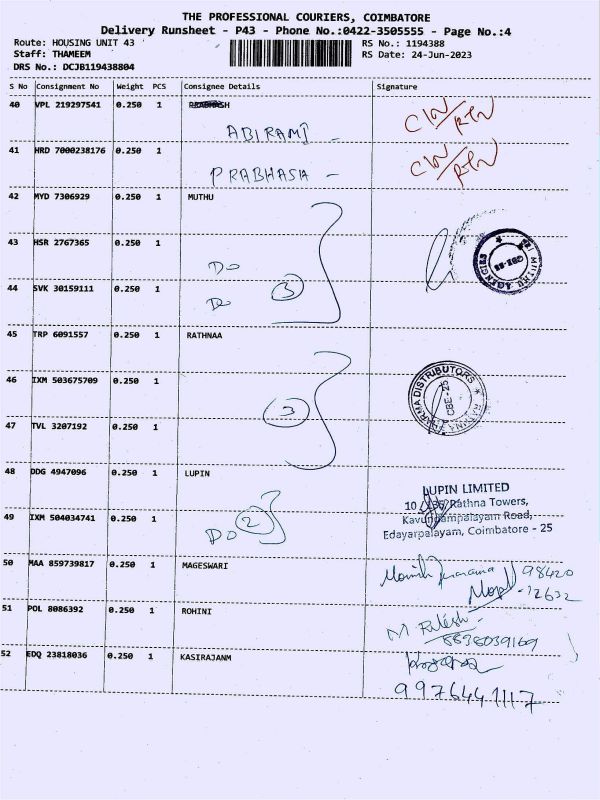 THE PROFESSIONAL COURIERS, COIMBATORE
Delivery Runsheet - P43 - Phone No.:0422-3505555 - Page No.:4
Route: HOUSING UNIT 43 RS No.: 1194388
Staff: THAMEEM RS Date: 24-Jun-2023
DRS No.: DCJB119438804
S No Consignment No Weight PCS Consignee Details Signature
40 VPL 219297541 0.250 1
ABIRAMI -
41 HRD 7000238176 0.250 1
PRABHASH -
42 MYD 7306929 0.250 1 MUTHU
43 HSR 2767365 0.250 1
DO
44 SVK 30159111 0.250 1 3
DO
45 TRP 6091557 0.250 1 RATHNAA
46 IXM 503675709 0.250 1
3
47 TVL 3207192 0.250 1
PHARMA DISTRIBUTORS
CBE-25
48 DDG 4947096 0.250 1 LUPIN
LUPIN LIMITED
Rathna Towers,
Kavundampalayam Road,
Edayarpalayam, Coimbatore - 25
49 IXM 504034741 0.250 1
DO 2
50 MAA 859739817 0.250 1 MAGESWARI
98420
12632
51 POL 8086392 0.250 1 ROHINI
8838039169
52 EDQ 23818036 0.250 1 KASIRAJANM
9976441117